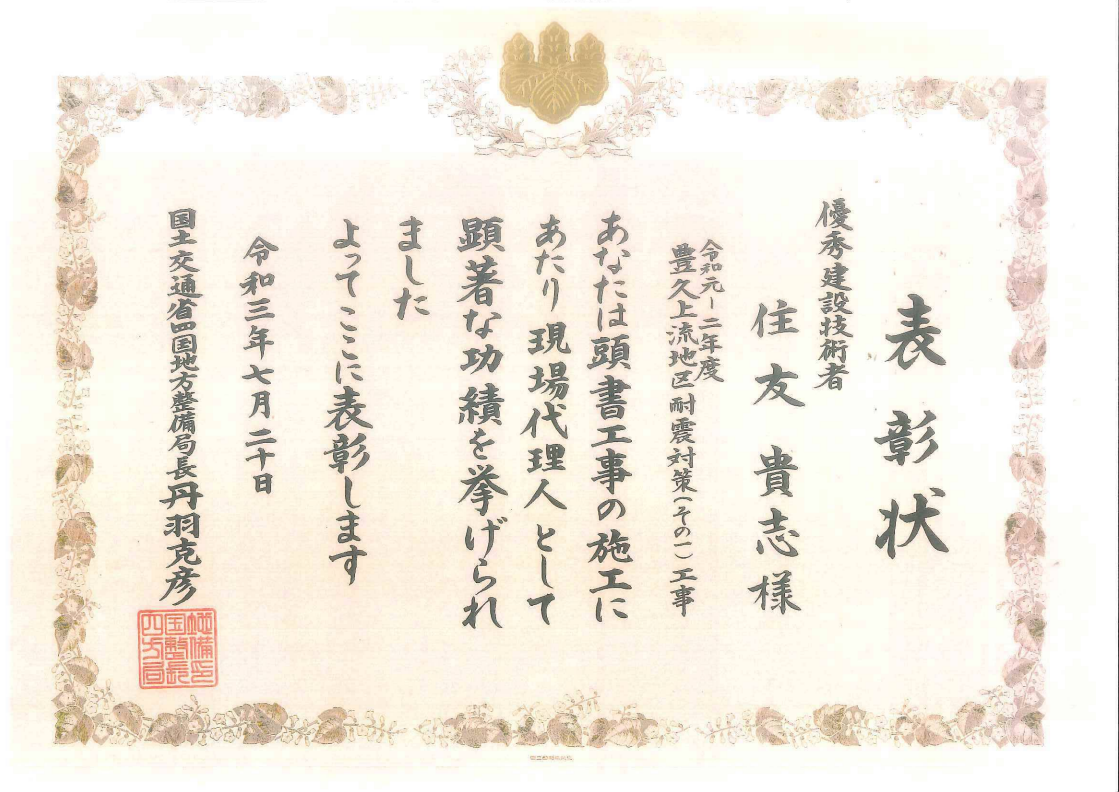 表彰状
優秀建設技術者
住友貴志様
令和元-二年度
豊久上流地区耐震対策(その一)工事
あなたは頭書工事の施工に
あたり現場代理人として
顕著な功績を挙げられ
ました
よってここに表彰します
令和三年七月二十日
国土交通省四国地方整備局長丹羽克彦